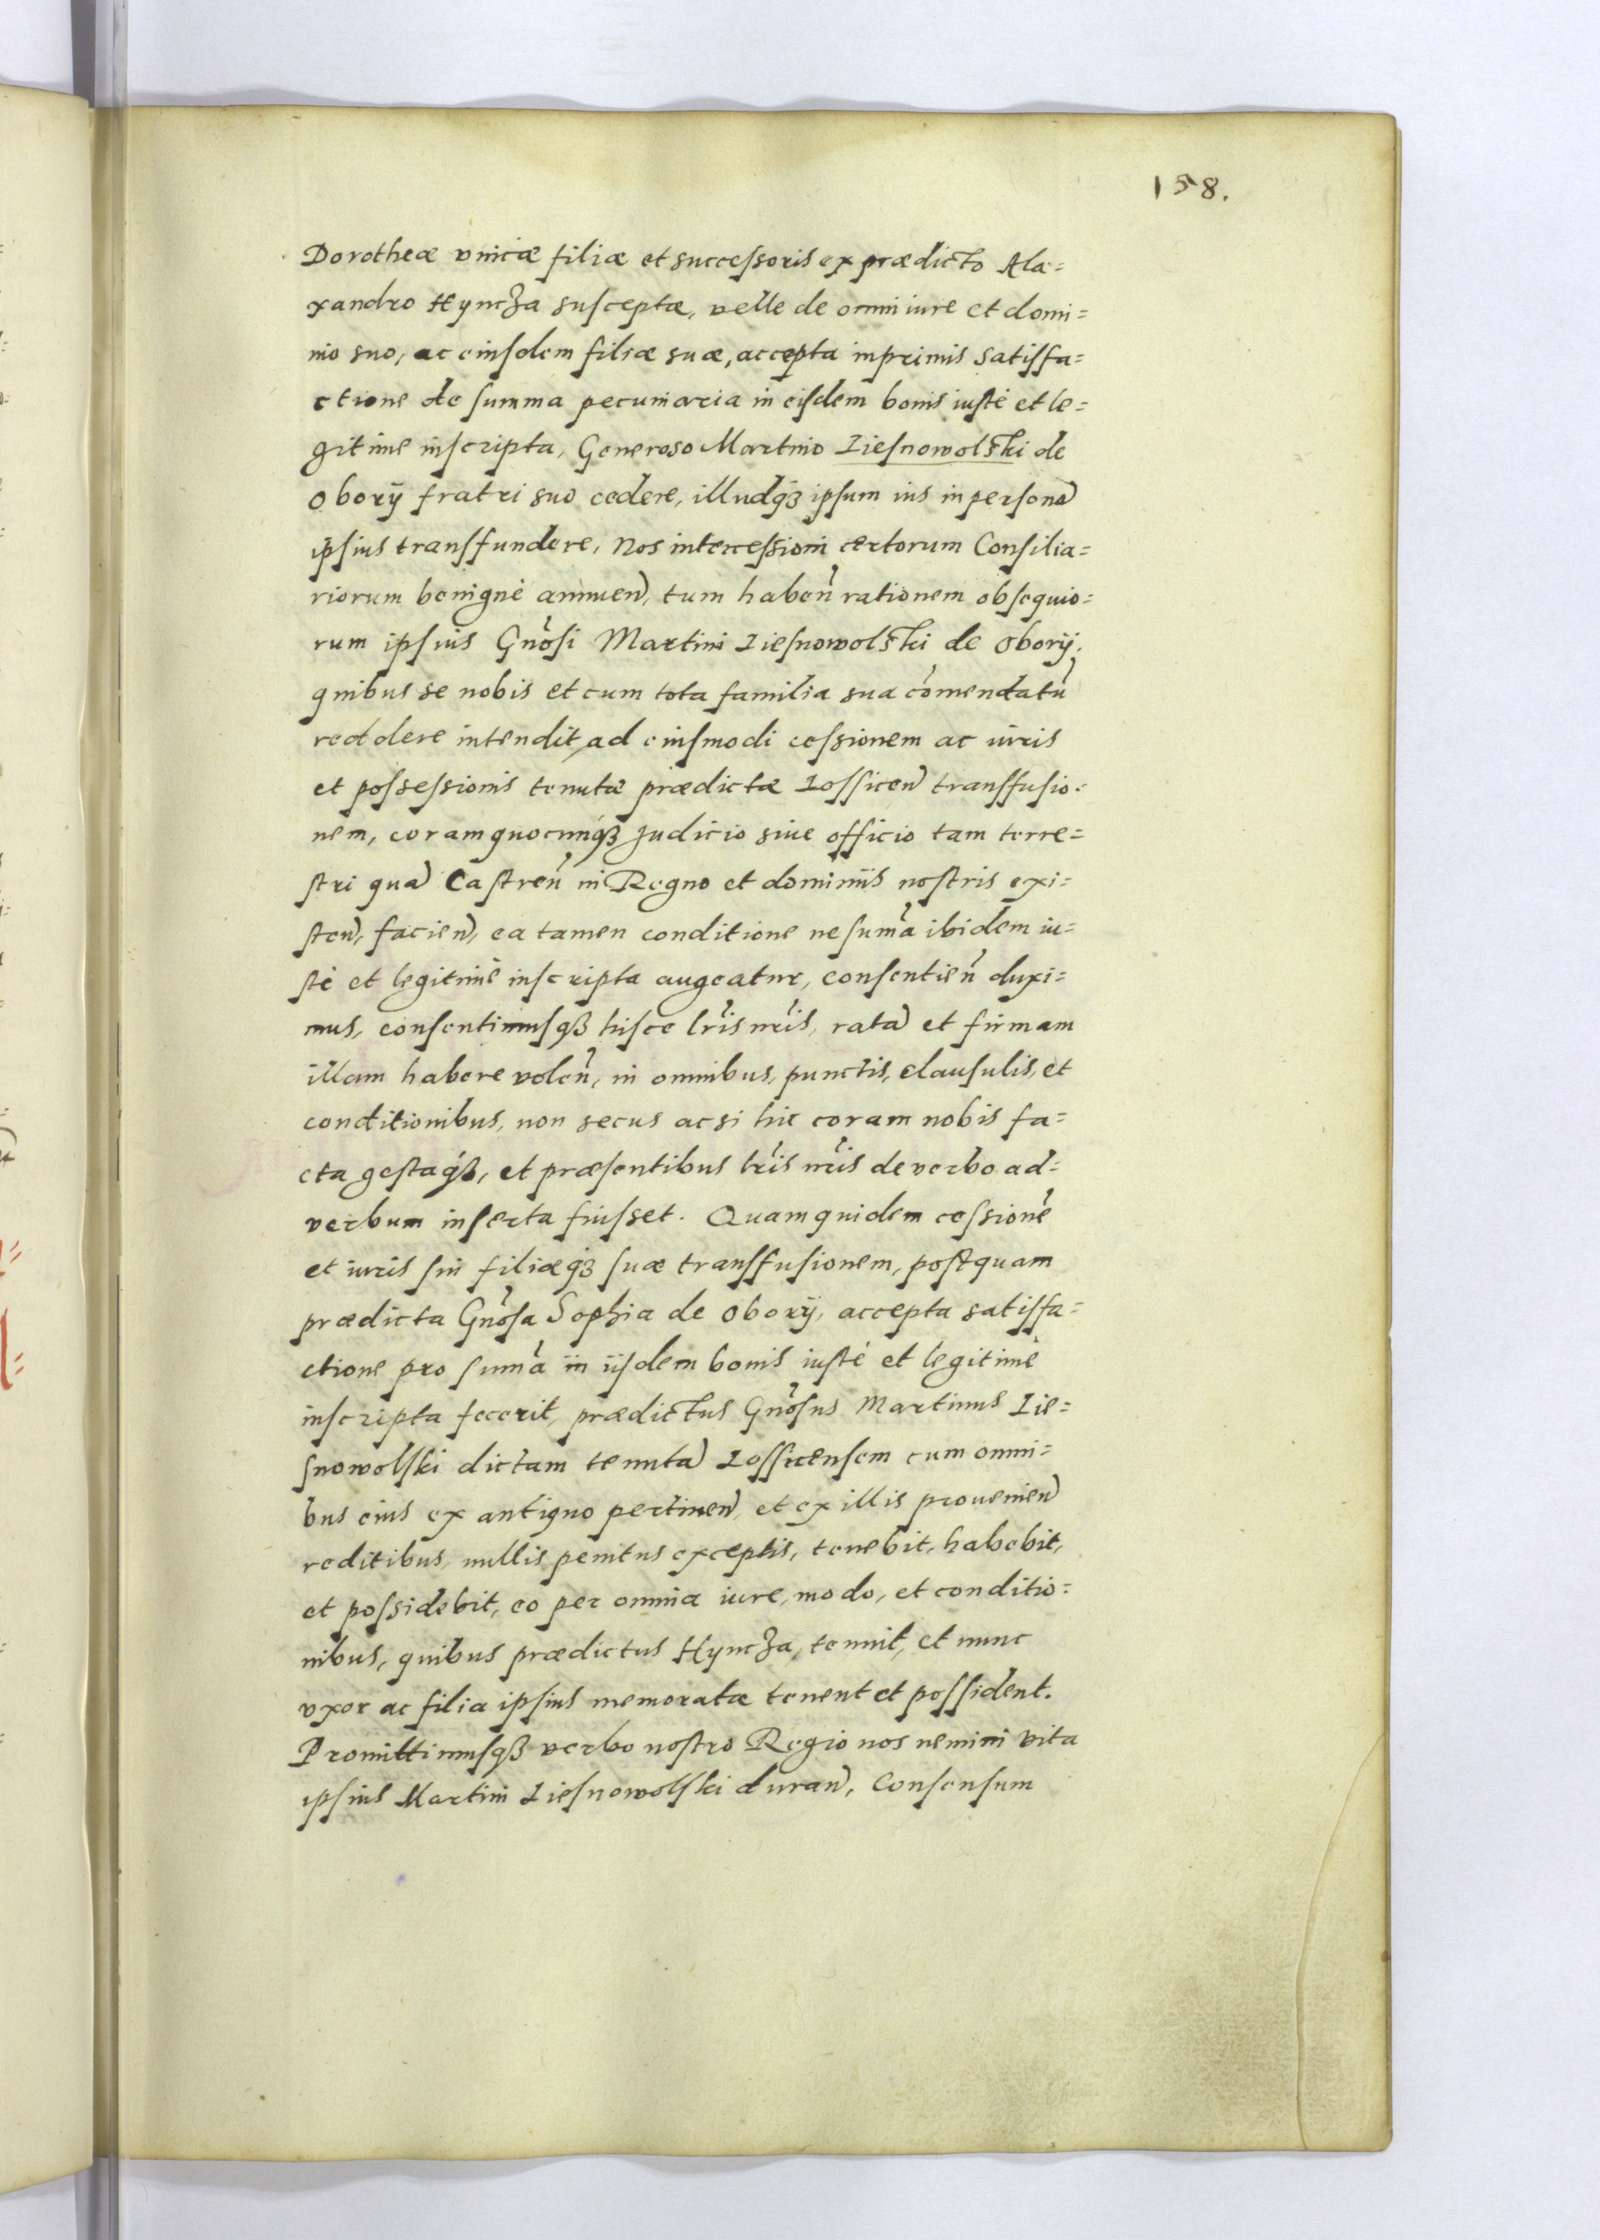 158.
Dorotheæ vnicæ filiæ et successoris ex prædicto Ale=
xandro Hyncza susceptæ, velle de omni iure et domi=
nio suo, ac eiusdem filiæ suæ, accepta inprimis satisfa=
ctione de summa pecuniaria in eisdem bonis iustè et le=
gitime inscripta, Generoso Martino Liesnowolski de
Oborÿ fratri suo cedere, illudq₃ ipsum ius in personã
ipsius transfundere, Nos intercessioni certorum Consilia=
riorum benignè annuen̄, tum haben̄ rationem obsequio=
rum ipsius Gn̄osi Martini Liesnowolski de Oborÿ,
quibus se nobis et cum tota familia sua com̄endatū
reddere intendit, ad eiusmodi cessionem ac iuris
et possessionis tenutæ prædictæ Lossicen̄ transfusio=
nem, coram quocunq₃ Judicio siue officio tam terre=
stri quã Castren̄ in Regno et dominiis nostris exi=
sten̄, facien̄, ea tamen conditione ne sum̄a ibidem iu=
stè et legitimè inscripta augeatur, consentien̄ duxi=
mus, consentimusq₃ hisce lr̄is nr̄is, ratã et firmam
illam habere volen̄, in omnibus, punctis, clausulis, et
conditionibus, non secus acsi hic coram nobis fa=
cta gestaq₃, et præsentibus lr̄is nr̄is de verbo ad=
verbum inserta fuisset. Quam quidem cessionē
et iuris sui filiæq₃ suæ transfusionem, postquam
prædicta Gn̄osa Sophia de Oborÿ, accepta satisfa=
ctione pro sum̄a in iisdem bonis iustè et legitimè
inscripta fecerit, prædictus Gn̄osus Martinus Lie=
snowolski dictam tenutã Lossicensem cum omni=
bus eius ex antiquo pertinen̄ et ex illis prouenien̄
reditibus, nullis penitus exceptis, tenebit, habebit,
et possidebit, eo per omnia iure, modo, et conditio=
nibus, quibus prædictus Hyncza, tenuit, et nunc
vxor ac filia ipsius memoratæ tenent et possident.
Promittimusq₃ verbo nostro Regio nos nemini vita
ipsius Martini Liesnowolski duran̄, Consensum